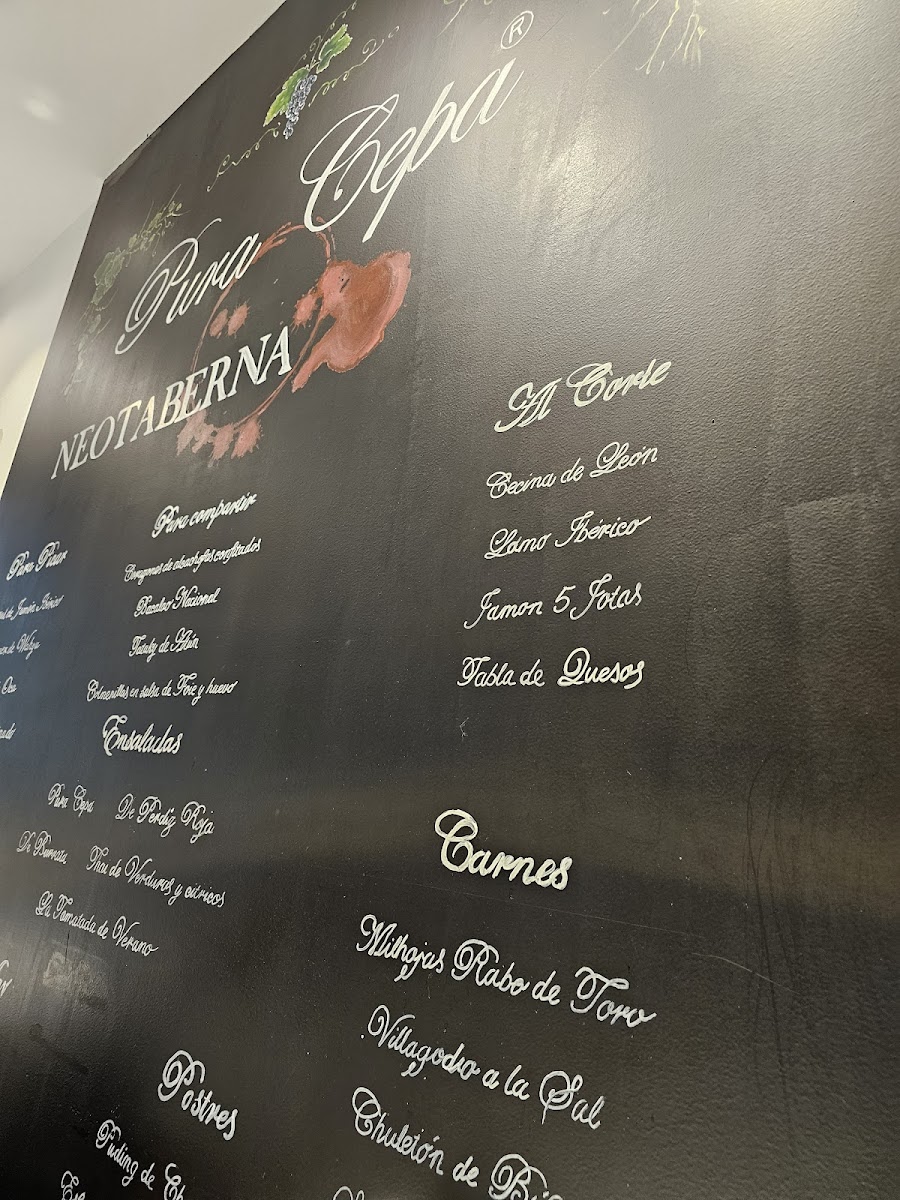 Pura Cepa ®
NEOTABERNA
Para Picar
de Jamón Ibérico
de Wakyu
Oca
Para compartir
Corazones de alcachofas confitados
Bacalao Nacional
de Atún
Colmenillas en salsa de Foie y huevo
Ensaladas
Pura Cepa De Perdiz Roja
De Burrata Thai de Verduras y cítricos
La Tomatada de Verano
Postres
Puding de
Al Corte
Cecina de León
Lomo Ibérico
Jamon 5 Jotas
Tabla de Quesos
Carnes
Milhojas Rabo de Toro
Villagodio a la Sal
Chuletón de